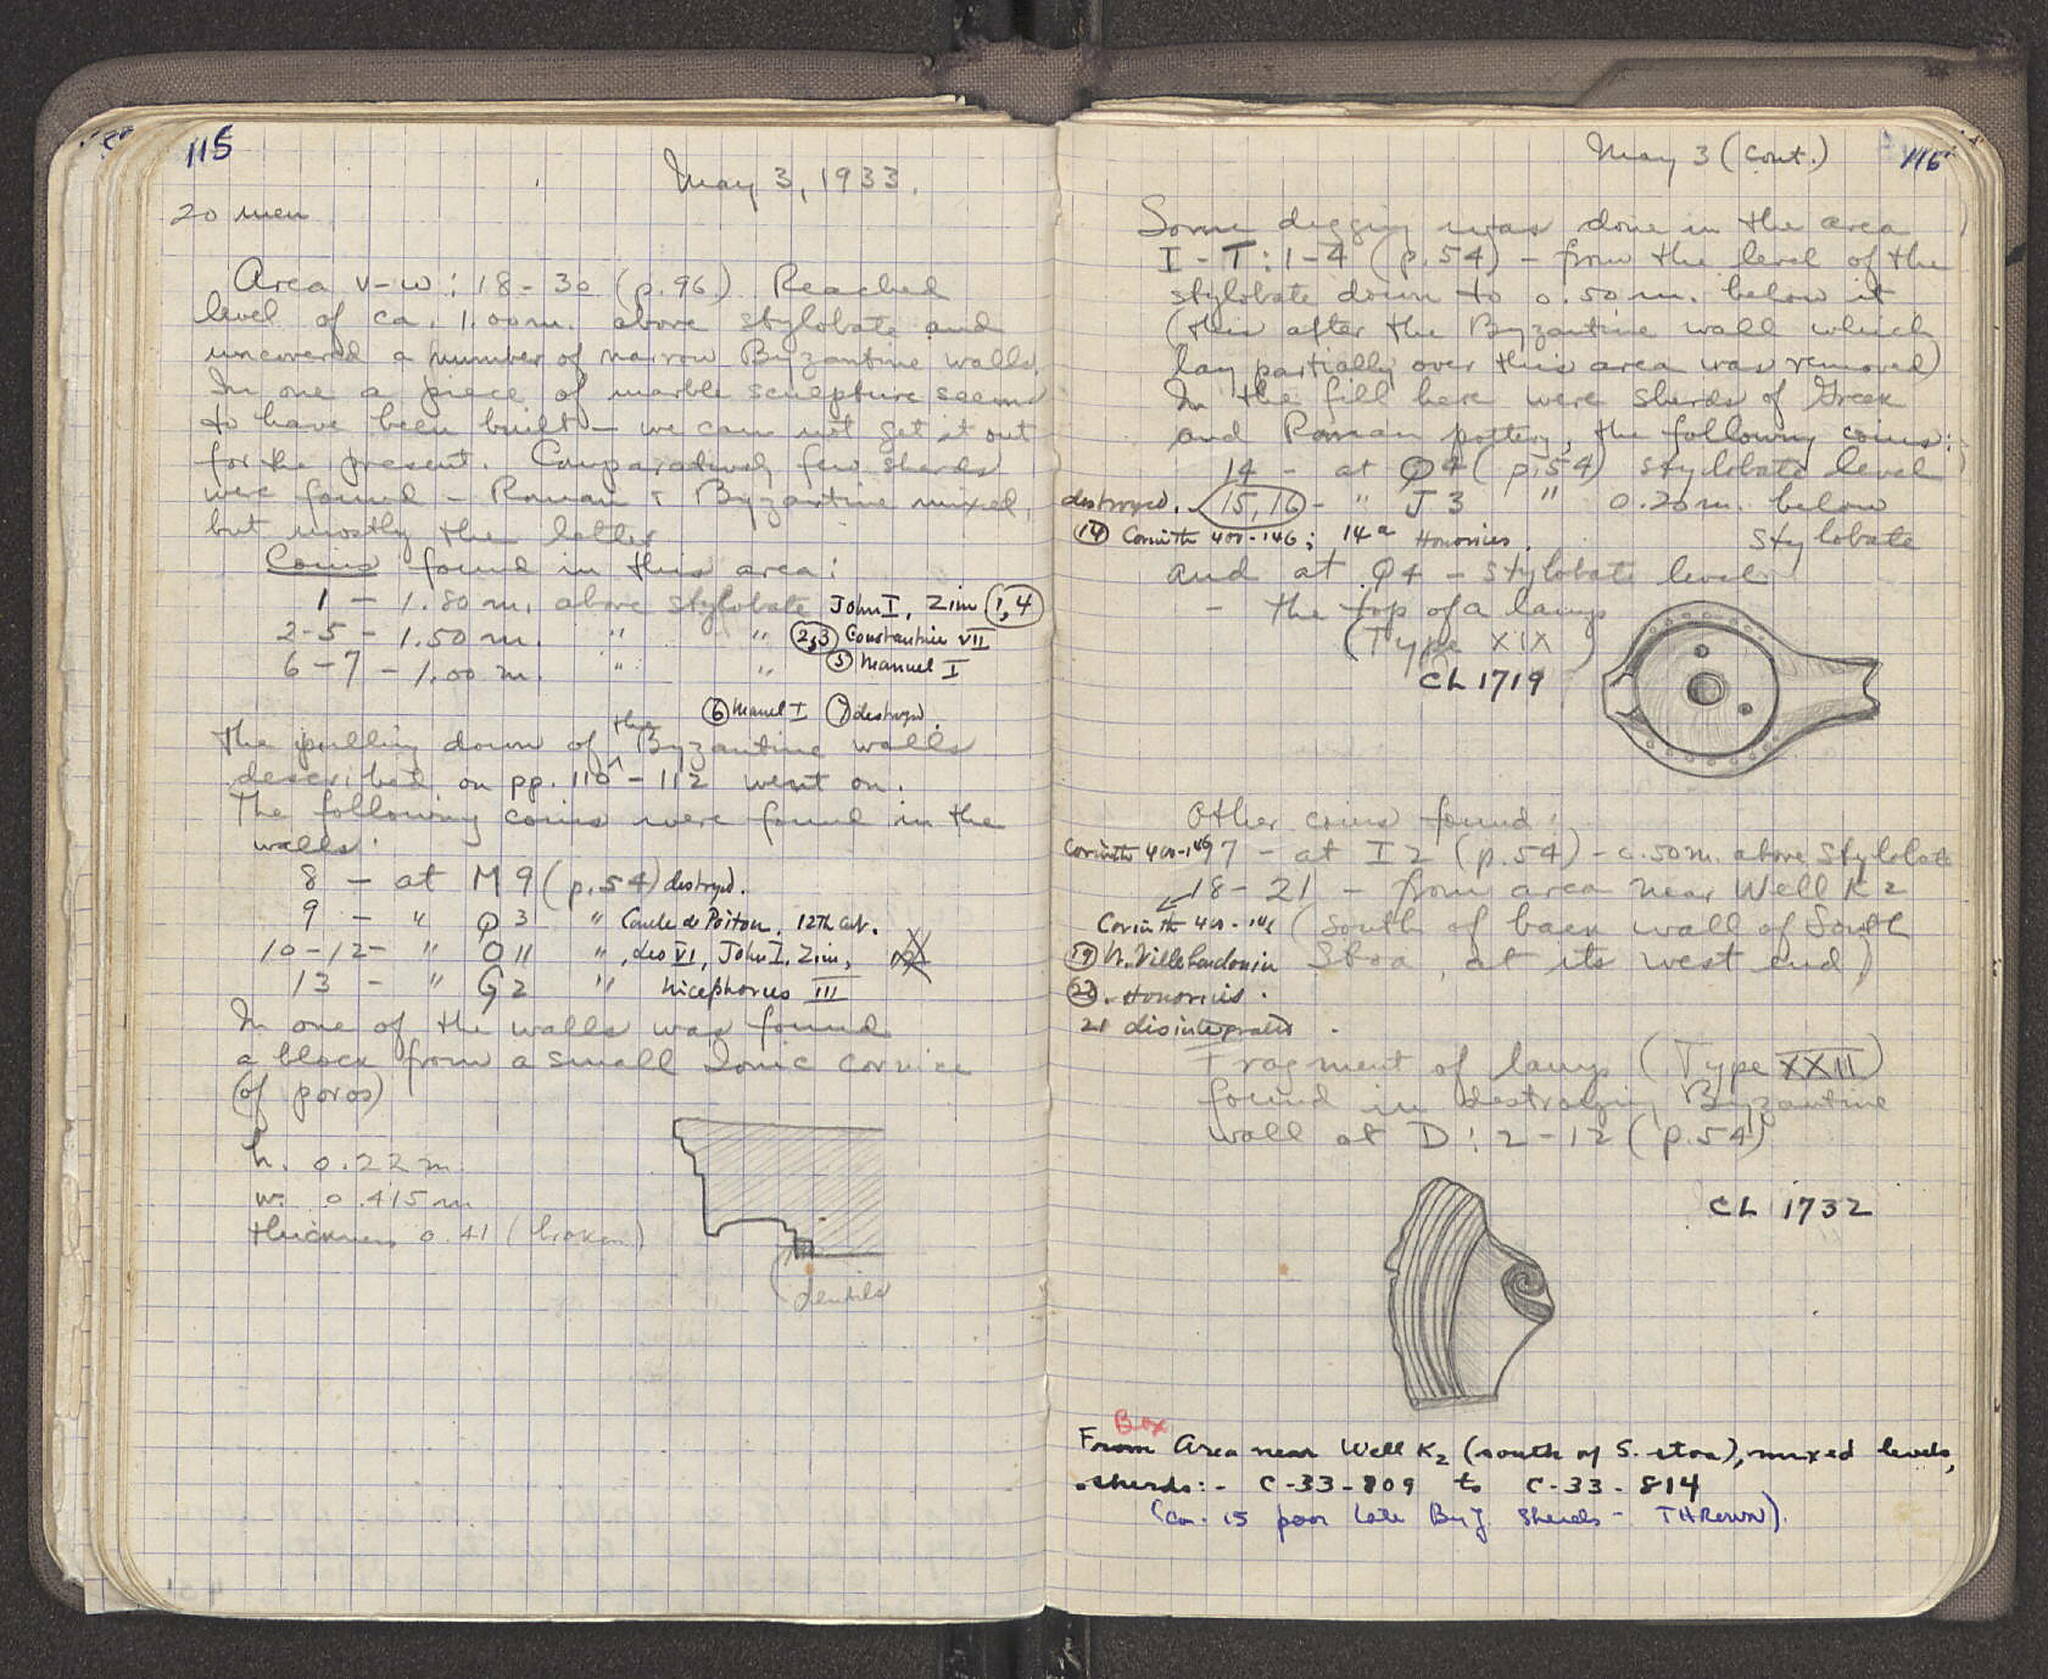 115
May 3, 1933.
20 men
Area V-W: 18-30 (p. 96) Reached
level of ca. 1.00 m. above stylobate and
uncovered a number of narrow Byzantine walls.
In one a piece of marble sculpture seems
to have been built — we can not get it out
for the present. Comparatively few sherds
were found - Roman & Byzantine mixed,
but mostly the latter
Coins found in this area:
1 - 1.80 m. above stylobate John I, Zim (1,4)
2-5 - 1.50 m. " " (2,3) Constantine VII
6-7 - 1.00 m. " " (5) Manuel I
(6) Manuel I (7) destroyed.
The pulling down of the Byzantine walls
described on pp. 110-112 went on.
The following coins were found in the
walls:
8 - at M 9 (p. 54) destroyed.
9 - " Q 3 " Comte de Poitou, 12th cent.
10-12- " O 11 " , Leo VI, John I. Zim,
13 - " G 2 " Nicephorus III
In one of the walls was found
a block from a small Ionic cornice
(of poros)
h. 0.22 m.
w. 0.415 m
thickness 0.41 (broken)
dentils
May 3 (cont.)
116
Some digging was done in the area
I - T: 1-4 (p. 54) - from the level of the
stylobate down to 0.50 m. below it
(this after the Byzantine wall which
lay partially over this area was removed)
In the fill here were sherds of Greek
and Roman pottery, the following coins:
14 - at Q4 (p. 54) stylobate level
destroyed. 15, 16 - " J 3 " 0.20 m. below
(14) Corinth 400-146; 14a Honorius. stylobate
and at Q4 - stylobate level
- the top of a lamp
(Type XIX)
CL 1719
Other coins found:
Corinth 400-146 17 - at I 2 (p. 54) - 0.50 m. above stylobate
18-21 - from area near Well K2
Corinth 400-146 (South of back wall of South
(19) W. Villehardouin Stoa, at its west end)
Honorius.
21 disintegrated.
Fragment of lamp (Type XXII)
found in destroying Byzantine
wall at D: 2-12 (p. 54)
CL 1732
Box
From Area near Well K2 (south of S. stoa), mixed levels,
sherds:- C-33-809 to C-33-814
(ca. 15 poor late Byz. sherds - THROWN).